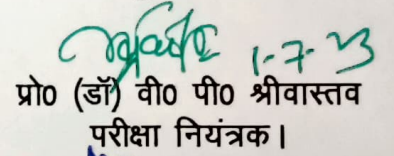 1-7-23
प्रो0 (डॉ) वी0 पी0 श्रीवास्तव
परीक्षा नियंत्रक।